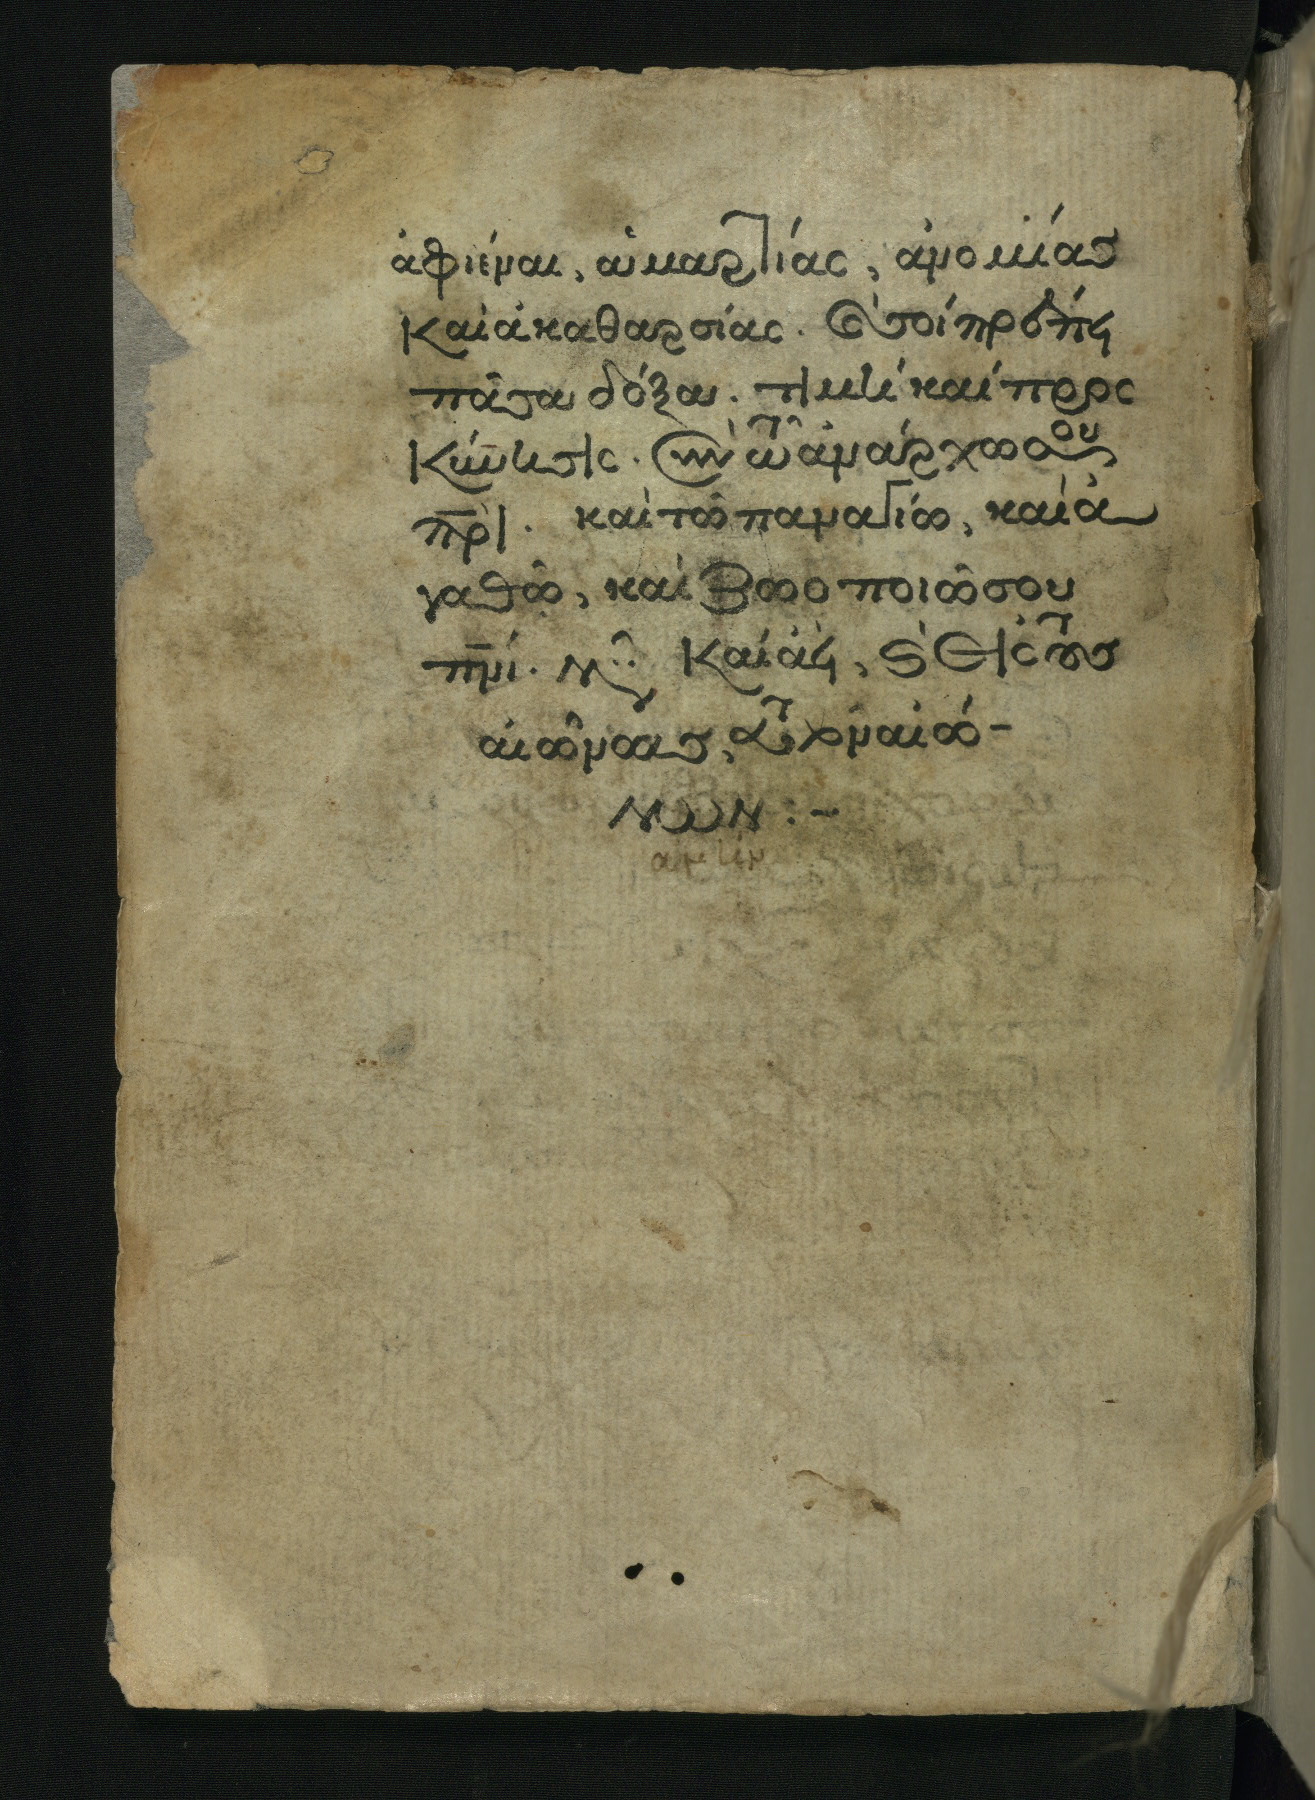 ἀφιέναι, ἁμαρτίας, ἀνομίας
καὶ ἀκαθαρσίας.
πᾶσα δόξα. τιμὴ καὶ προσ
κύνησις. σὺν τῶ ἀνάρχω σου
πρὶ. καὶ τῶ παναγίω, καὶ ἀ
γαθῶ, καὶ ζωοποιῶ σου
πνί. νῦν καὶ ἀεὶ, καὶ εἰς τοὺς
αἰῶνας, τῶν αἰώ-
νων :-
ἀμήν